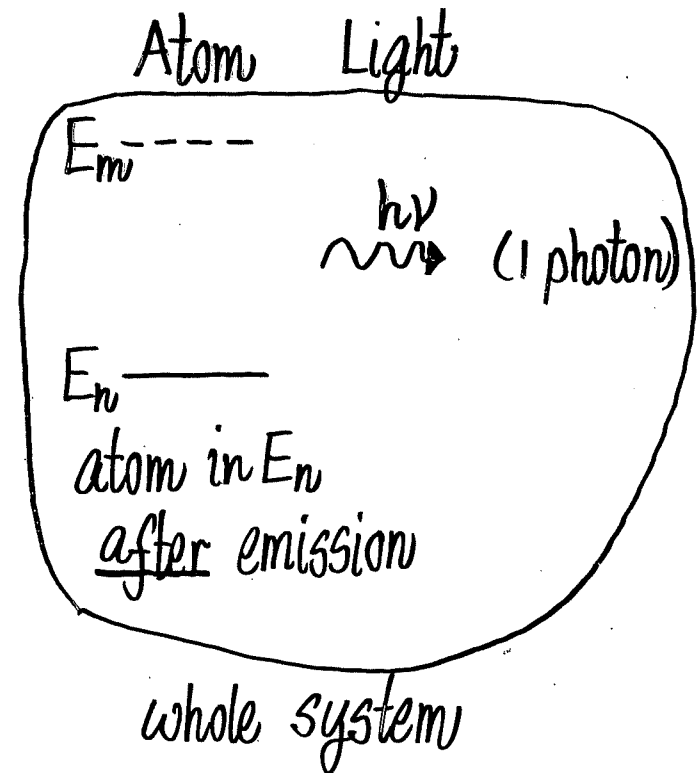 Atom Light
Em
hν
(1 photon)
En
atom in En
after emission
whole system